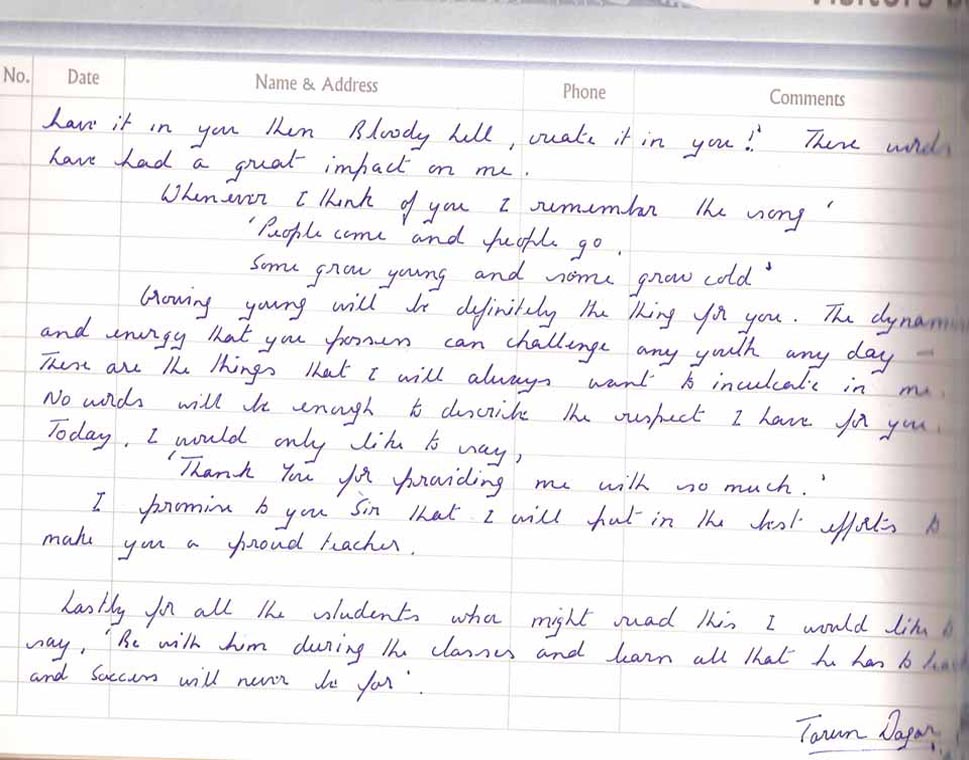 No. Date Name & Address Phone Comments
have it in you then Bloody hell, create it in you!' These words
have had a great impact on me.
Whenever I think of you I remember the song '
'People come and people go.
Some grow young and some grow cold'
Growing young will be definitely the thing for you. The
and energy that you possess can challenge any youth any day –
These are the things that I will always want to inculcate in me.
No words will be enough to describe the respect I have for you.
Today, I would only like to say,
'Thank You for providing me with so much.'
I promise to you Sir that I will put in the best efforts to
make you a proud teacher.
Lastly for all the students who might read this I would like to
say, 'Be with him during the classes and learn all that he has to
and Success will never be far'.
Tarun Dagar